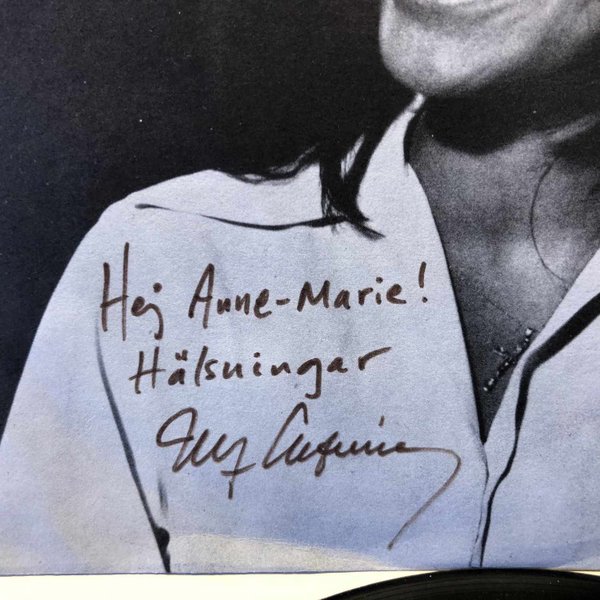 Hej Anne-Marie!
Hälsningar